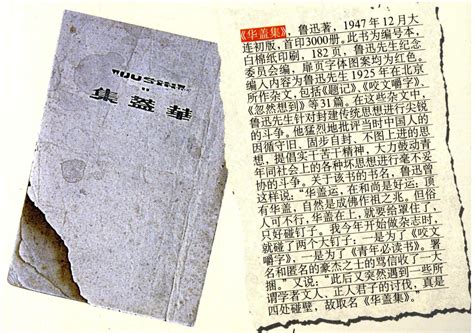 LUSIN
集蓋華
《华盖集》,鲁迅著,1947年12月大
连初版,首印3000册,此书为编号本,
白棉纸印刷,182页,鲁迅先生纪念
委员会编,扉页字体图案均为红色。
编入内容为鲁迅先生1925年在北京
所作杂文,包括《题记》、《咬文嚼字》、
《忽然想到》等31篇。在这些杂文中,
鲁迅先生针对封建传统思想进行尖锐
的斗争。他猛烈地批评当时中国人的
因循守旧、固步自封、不图上进的思
想,提倡实干苦干精神,大力鼓动青
年,同社会上的各种坏思想进行毫不妥
协的斗争。关于该书的书名,鲁迅曾
这样说:“华盖运,在和尚是好运:顶
有华盖,自然是成佛作祖之兆。但俗
人可不行,华盖在上,就要给罩住了,
只好碰钉子。我今年开始做杂志时,
就碰了两个大钉子:一是为了《咬文
嚼字》,一是为了《青年必读书》。署
名和匿名的豪杰之士的骂信收了一大
捆。”又说:“此后又突然遇到一些所
谓学者文人、正人君子的讨伐,真是
四处碰壁,故取名《华盖集》。